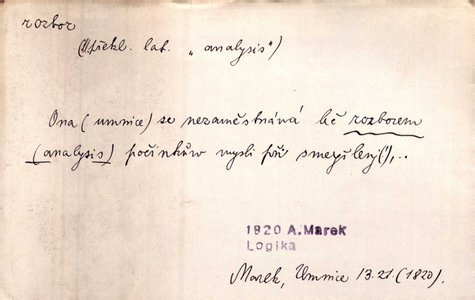 rozbor
(překl. lat. „analysis")
Ona (umnice) se nezaměstnává leč rozborem
(analysis) počinkůw mysli při smeyšlenj(!),..
1820 A. Marek
Logika
Marek, Umnice 13.21. (1820).